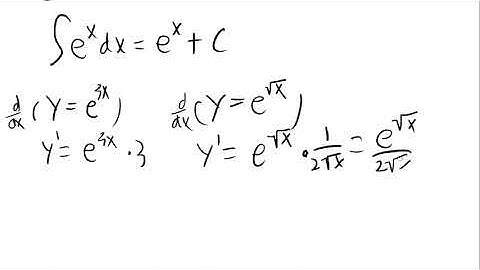 ∫e^x dx = e^x + C
d/dx (Y = e^{3x})
y' = e^{3x} · 3
d/dx (Y = e^{√x})
y' = e^{√x} · 1/(2√x) = e^{√x}/(2√